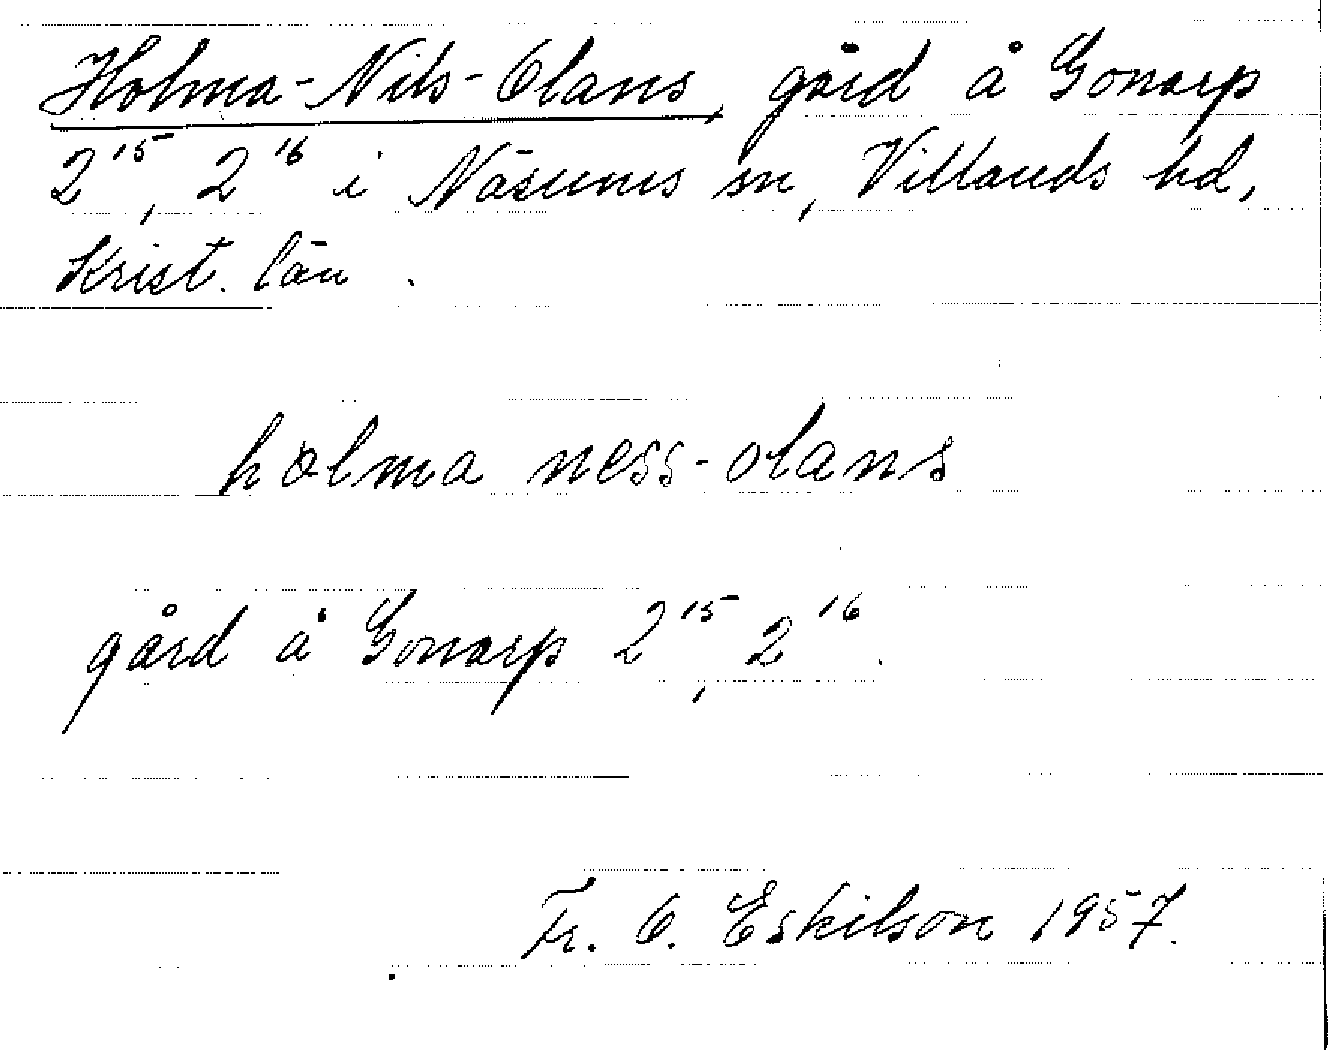 Holma-Nils-Olans, gård å Gonarp
2¹⁵, 2¹⁶ i Näsums sn, Villands hd,
Krist. län.
holma ness-olans
gård å Gonarp 2¹⁵, 2¹⁶.
Fr. O. Eskilson 1957.